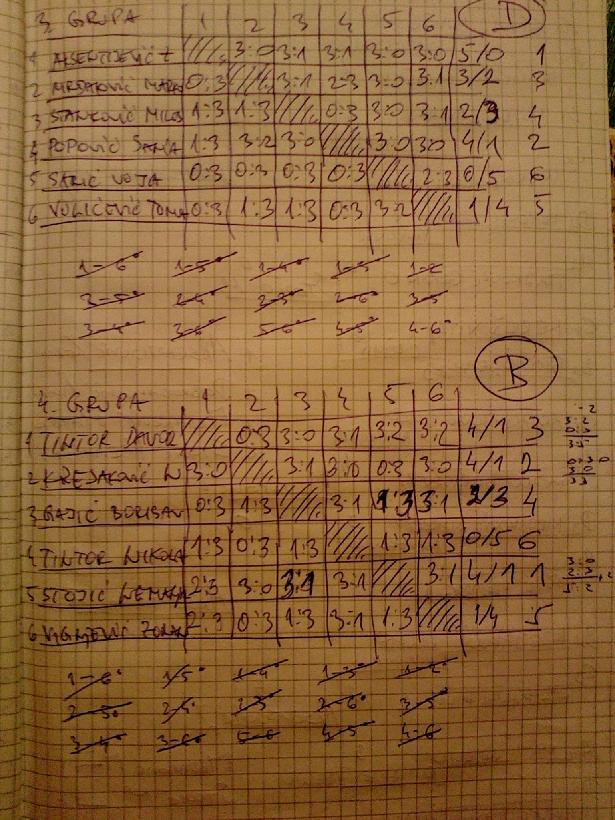 3. GRUPA 1 2 3 4 5 6 D
1 3:0 3:1 3:1 3:0 3:0 5/0 1
2 0:3 3:1 2:3 3:0 3:1 3/2 3
3 STANKOVIĆ MILOŠ 1:3 1:3 0:3 3:0 3:1 2/3 4
4 POPOVIĆ SANJA 1:3 3:2 3:0 3:0 3:0 4/1 2
5 SARIĆ VOJA 0:3 0:3 0:3 0:3 2:3 0/5 6
6 VOLIĆEVIĆ TOMA 0:3 1:3 1:3 0:3 3:2 1/4 5
1-6 1-5 1-4 1-3 1-2
2-5 2-4 2-3 2-6 3-5
3-4 3-6 5-6 4-5 4-6
B
4. GRUPA 1 2 3 4 5 6
1 TINTOR DAVOR 0:3 3:0 3:1 3:2 3:2 4/1 3
2 KREJAKOVIĆ N 3:0 3:1 3:0 0:3 3:0 4/1 2
3 GAJIĆ BORISAV 0:3 1:3 3:1 1:3 3:1 2/3 4
4 TINTOR NIKOLA 1:3 0:3 1:3 1:3 1:3 0/5 6
5 STOJIĆ NEMANJA 2:3 3:0 3:1 3:1 3:1 4/1 1
6 2:3 0:3 1:3 3:1 1:3 1/4 5
1-6 1-5 1-4 1-3 1-2
2-5 2-4 2-3 2-6 3-5
3-4 3-6 5-6 4-5 4-6